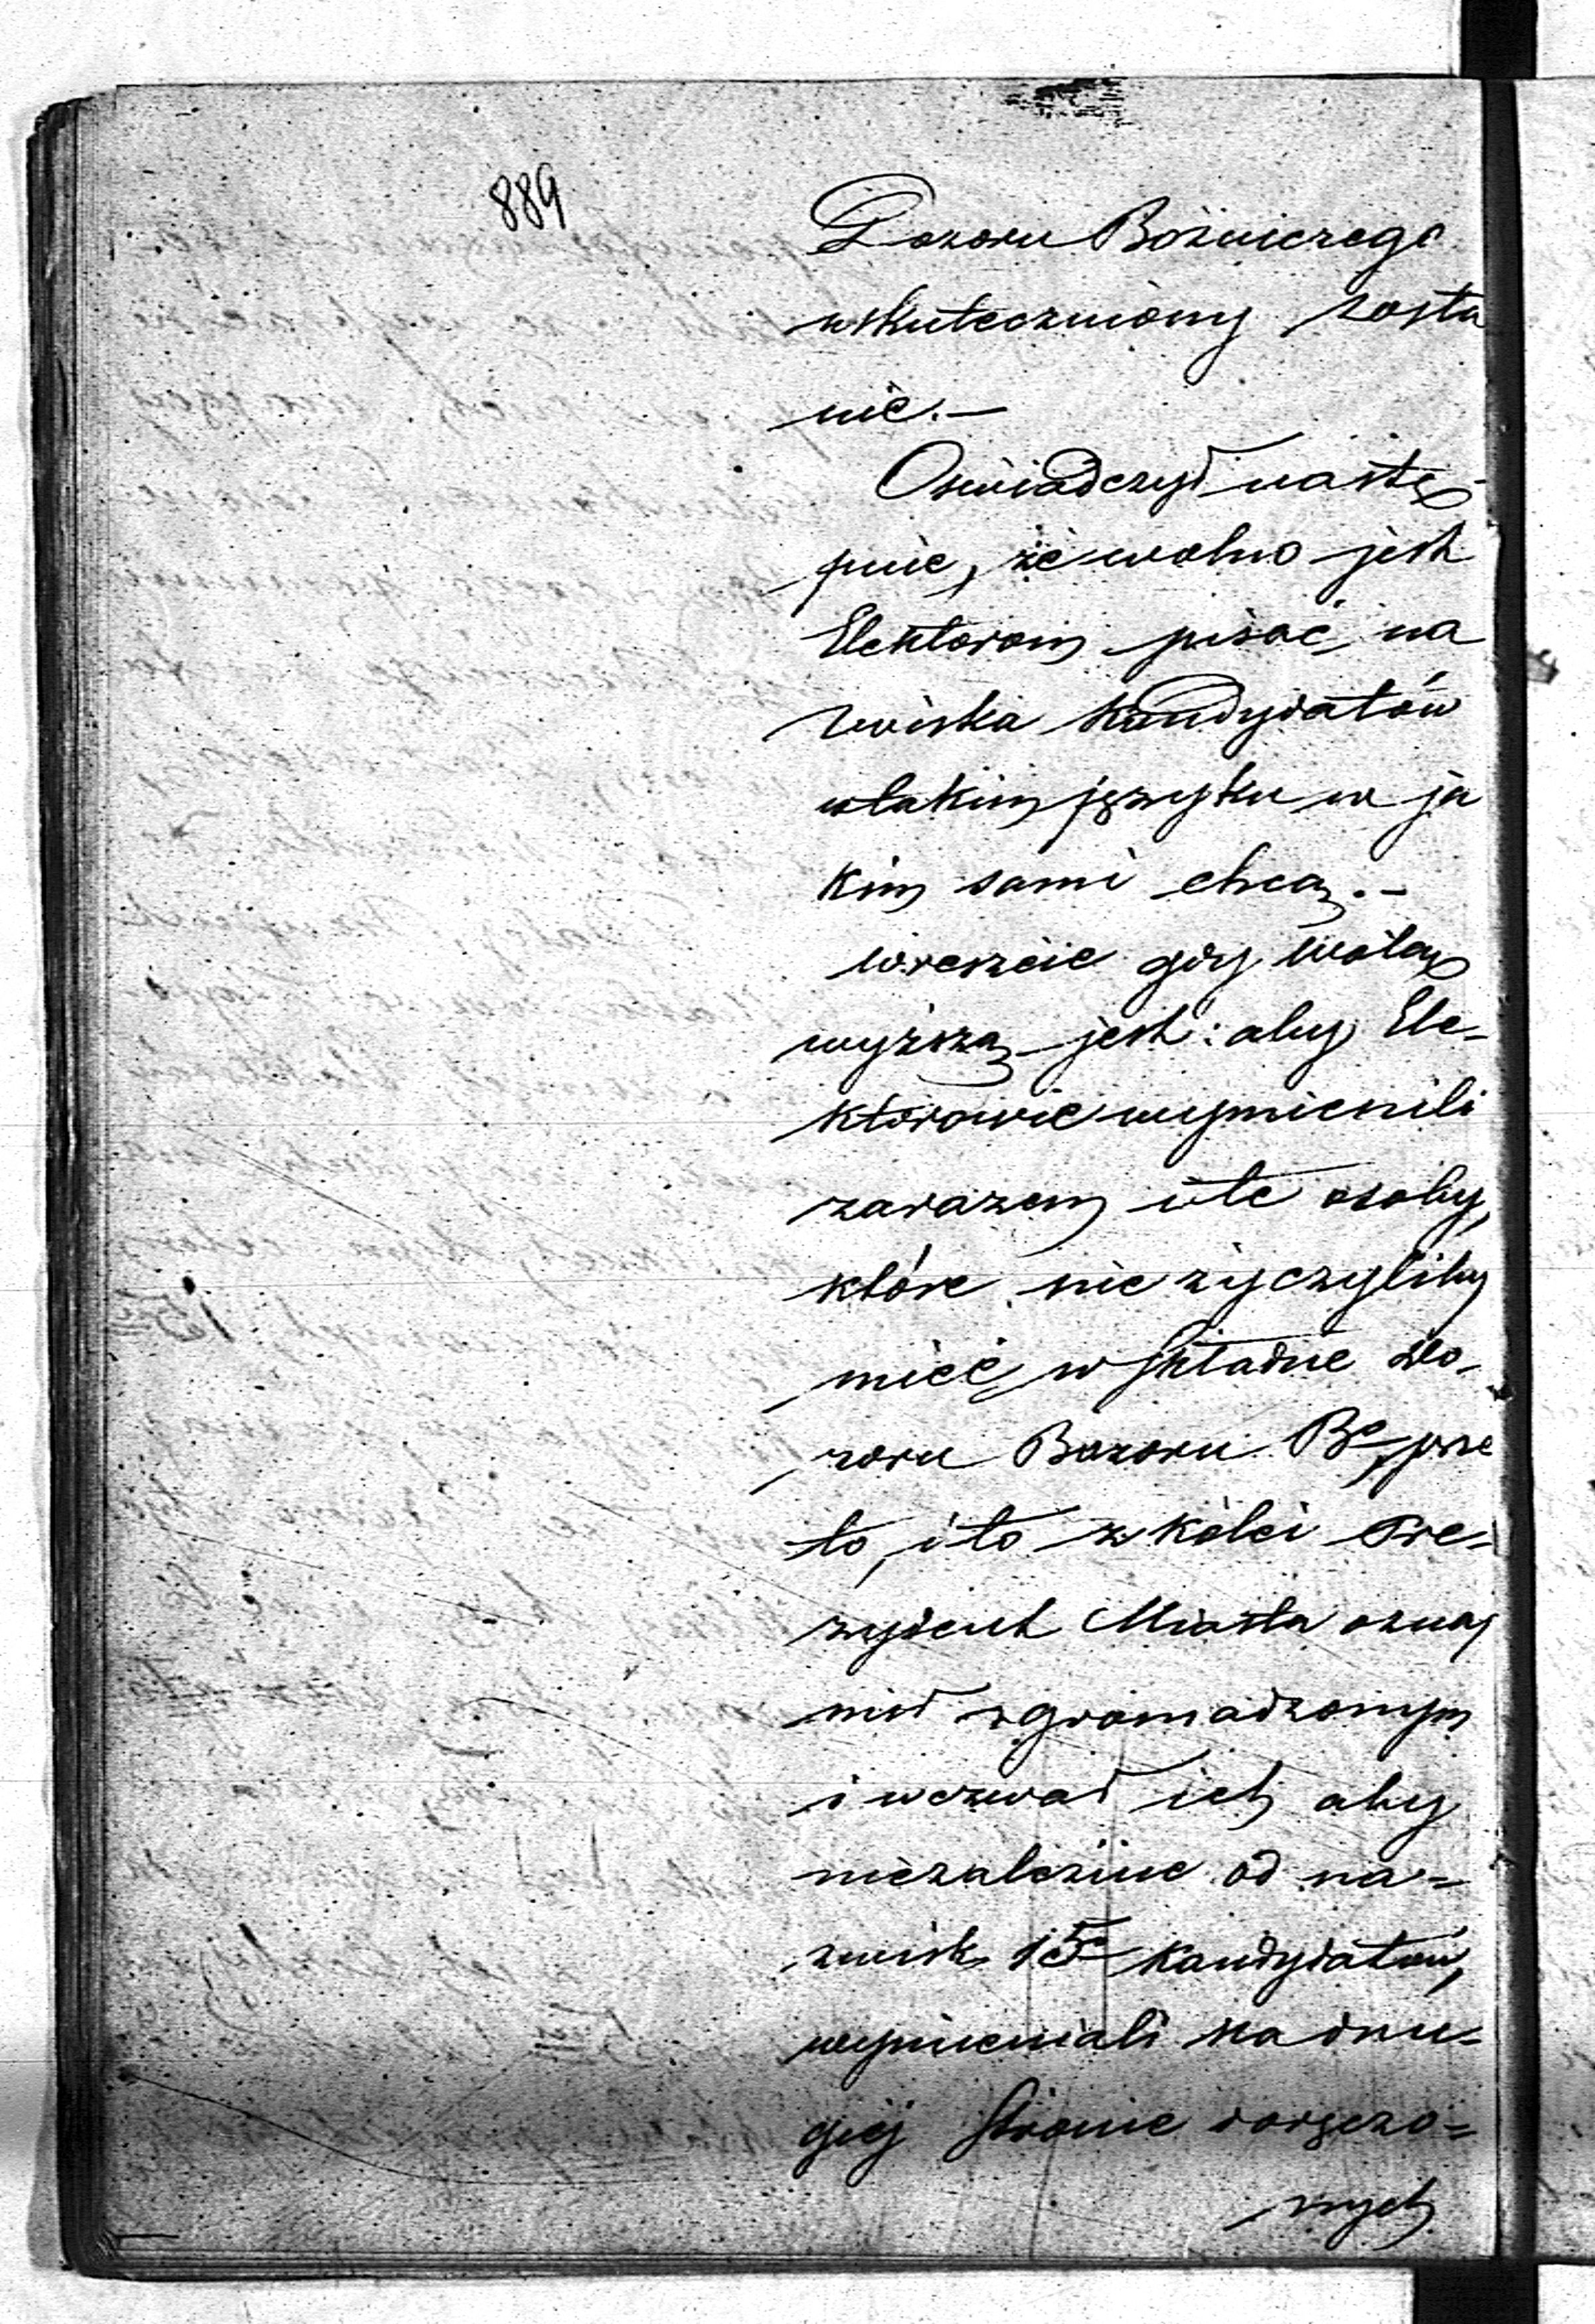 889
Dozoru Bożniczego
uskuteczniony zosta
nie.—
Oświadczył nastę-
pnie, że wolno jest
Elektorom pisać na
zwiska Kandydatów
w takim języku w ja
kim sami chcą.—
wreszcie gdy wolą
wyższą jest: aby Ele-
ktorowie wymienili
zarazem i te osoby,
które nie życzyliby
mieć w składzie Do-
zoru Bozoru Bo prze
to, i to z kolei Pre-
zydent Miasta oznaj
mił zgromadzonym
i wezwał ich aby
niezależnie od na-
zwisk 15 Kandydatów,
wymieniali na dru-
giej stronie doręczo-
nych